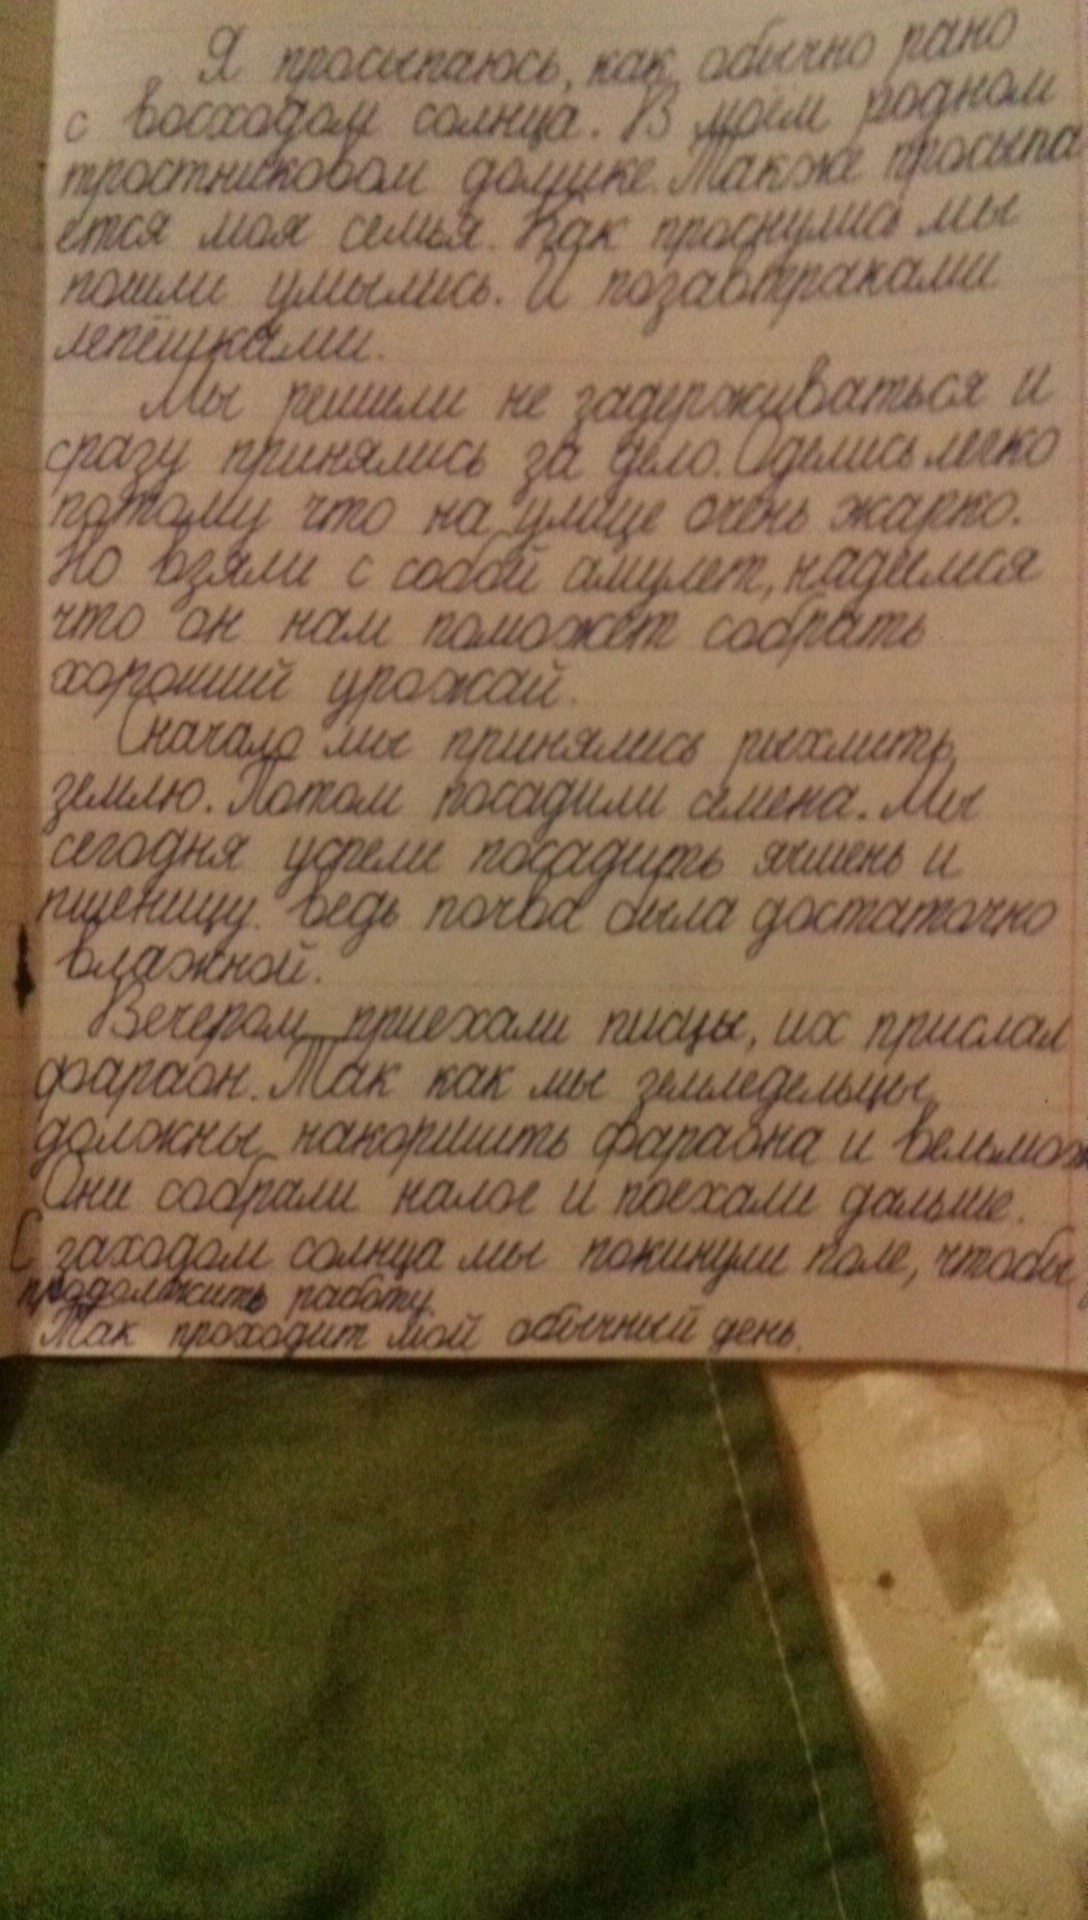 Я просыпаюсь, как обычно рано
с восходом солнца. В моём родном
тростниковом домике. Также просыпа
ется моя семья. Как проснулись мы
пошли умылись. И позавтракали
лепёшками.
Мы решили не задерживаться и
сразу принялись за дело. Оделись легко
потому что на улице очень жарко.
Но взяли с собой амулет, надеимся
что он нам поможет собрать
хороший урожай.
Сначало мы принялись рыхлить
землю. Потом посадили семена. Мы
сегодня успели посадить ячмень и
пшеницу. Ведь почва была достаточно
влажной.
Вечером приехали писцы, их прислал
фараон. Так как мы земледельцы
должны накормить фараона и вельмож
Они собрали налог и поехали дальше.
С заходом солнца мы покинули поле, чтобы
продолжить работу.
Так проходит мой обычный день.